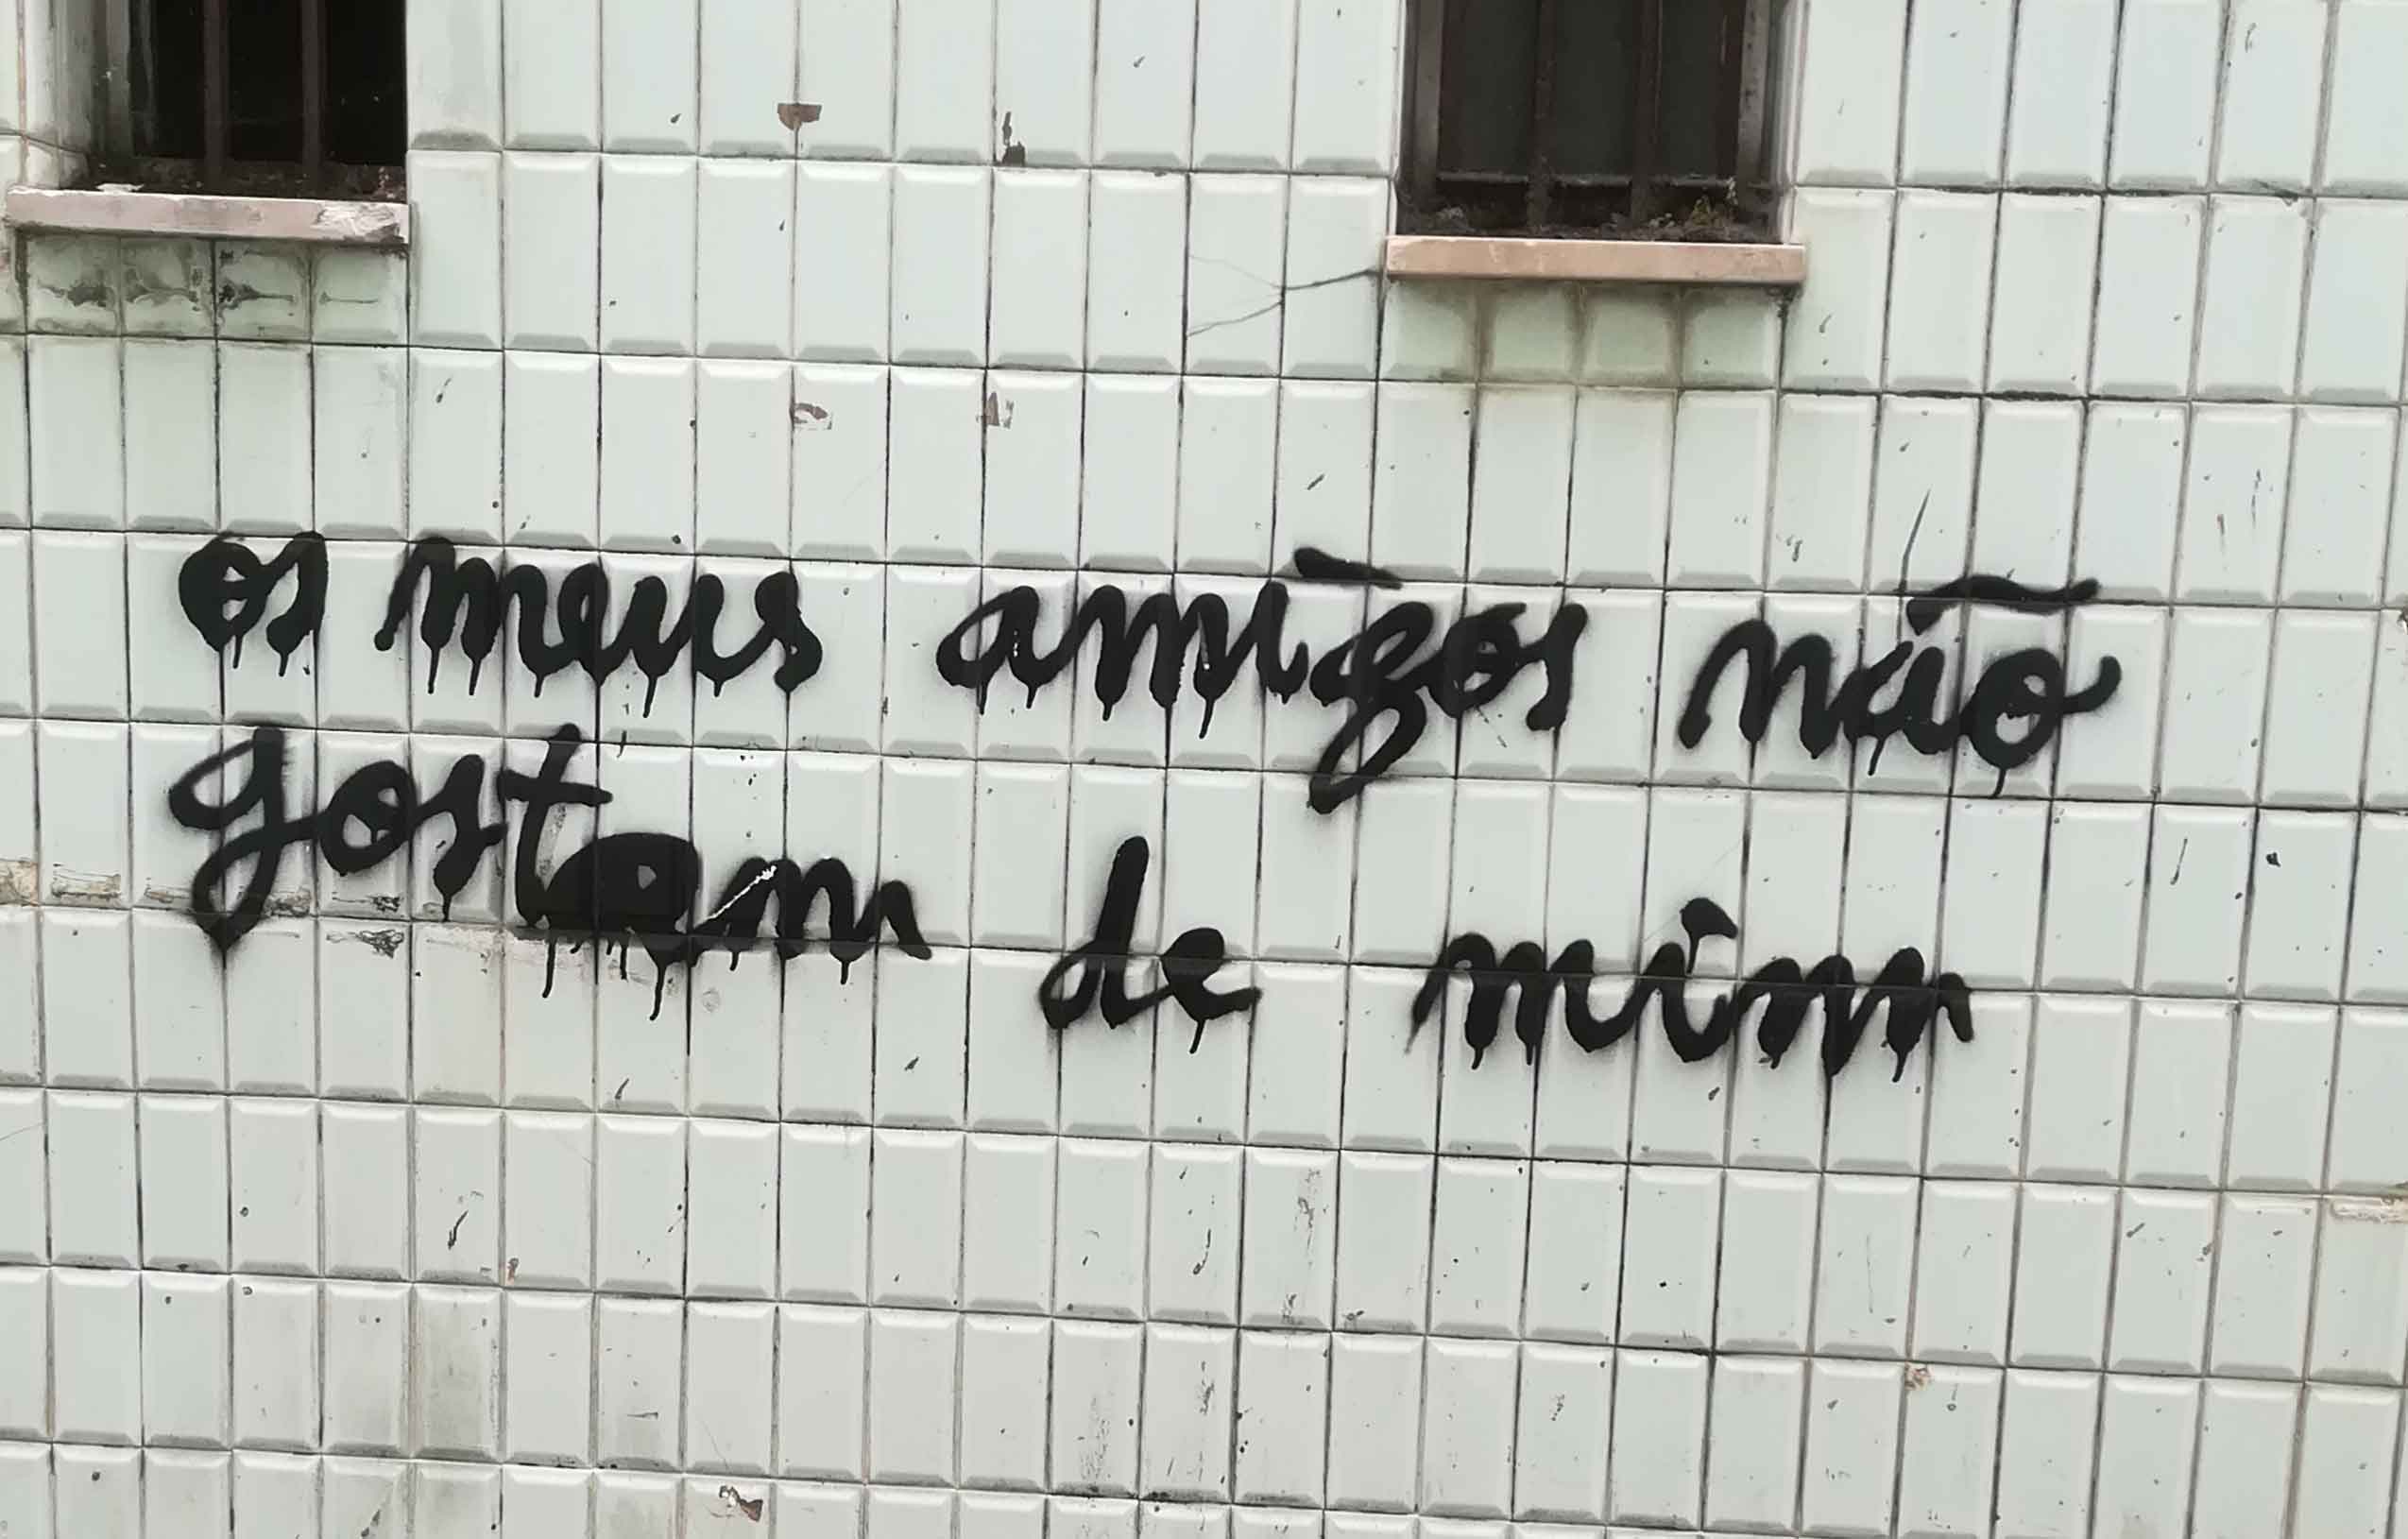 os meus amigos não
gostam de mim